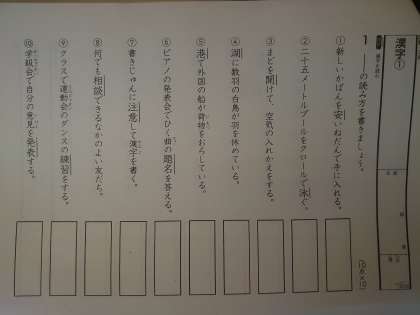 漢字①
1 ――の読み方を書きましょう。
10点×10
① 新しいかばんを安いねだんで手に入れる。
② 二十五メートルプールをクロールで泳ぐ。
③ まどを開けて、空気の入れかえをする。
④ 湖に数羽の白鳥が羽を休めている。
⑤ 港で外国の船が荷物をおろしている。
⑥ ピアノの発表会でひく曲の題名を答える。
⑦ 書きじゅんに注意して漢字を書く。
⑧ 何でも相談できるなかのよい友だち。
⑨ クラスで運動会のダンスの練習をする。
⑩ 学級会で自分の意見を発表する。